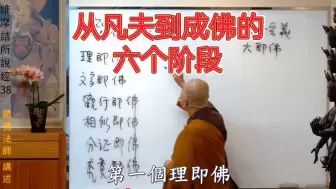 从凡夫到成佛的
六个阶段
維摩詰所說經38
閒佛法師 講述
六即佛
理即佛
名字即佛
觀行即佛
相似即佛
分证即佛
第一個理即佛